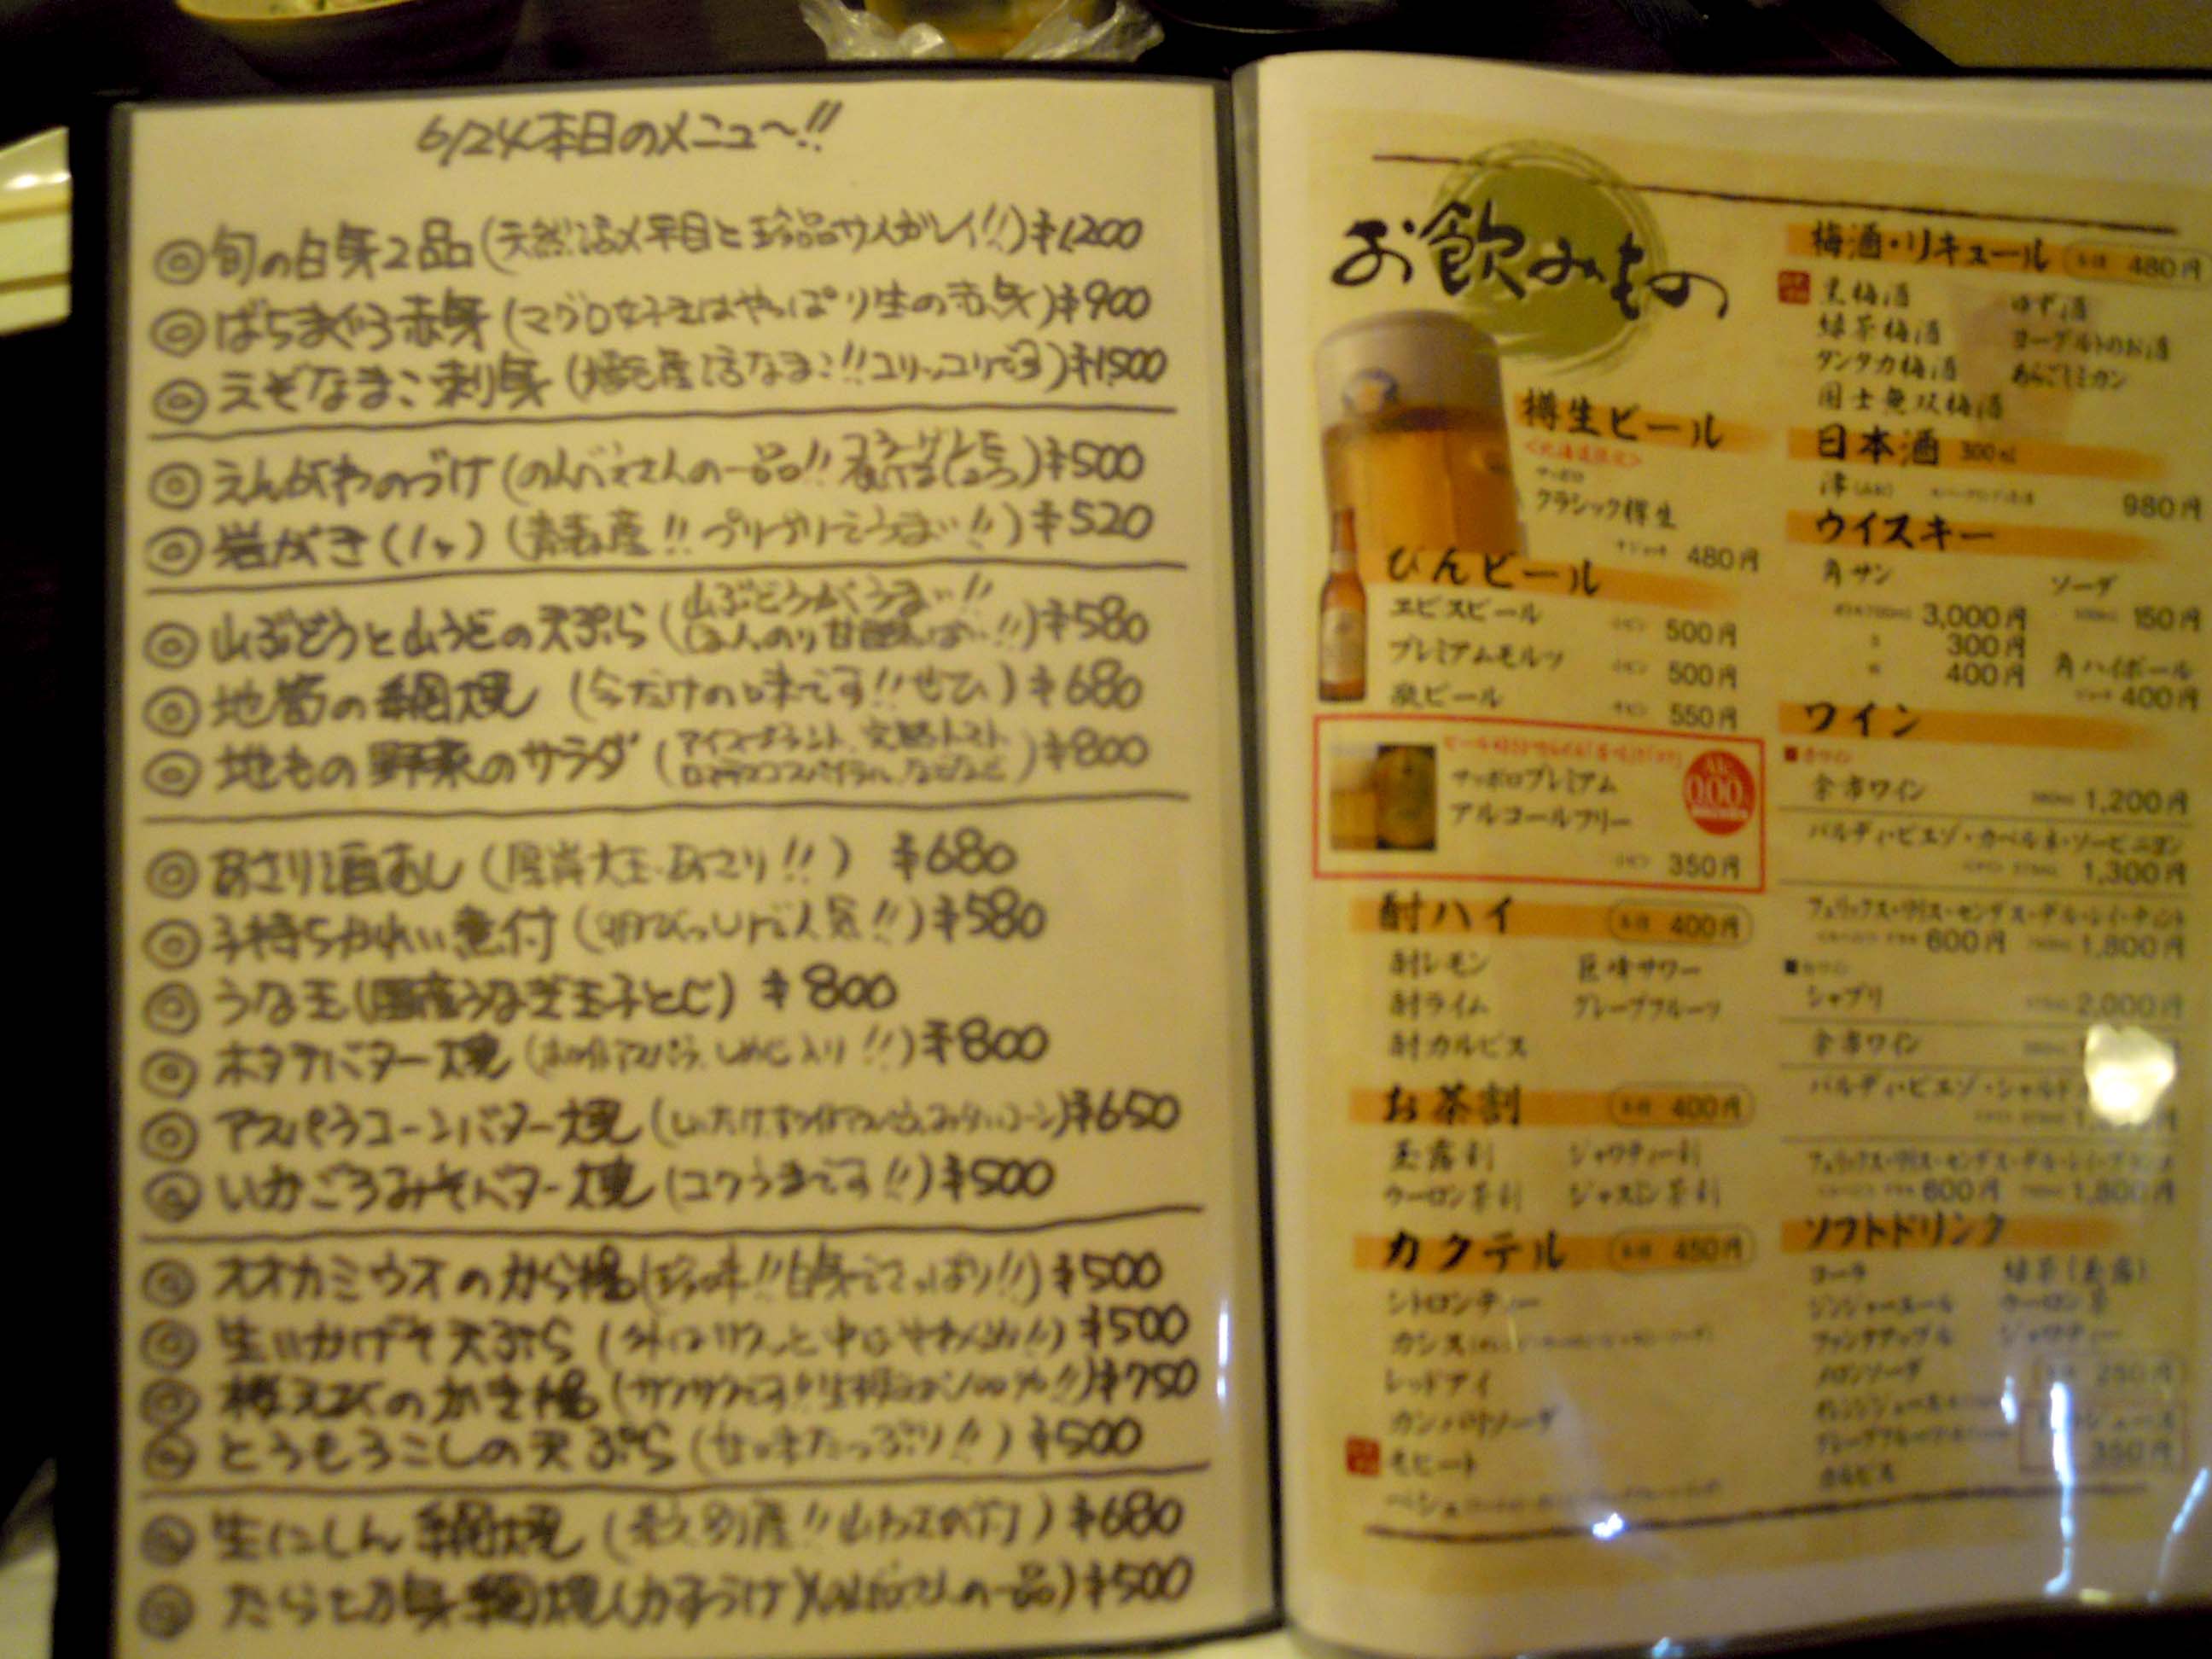 6/24本日のメニュ〜!!
◎旬の白身2品(天然活〆平目と珍品サメガレイ!!)¥1,200
◎ばちまぐろ赤身(マグロ好きはやっぱり生の赤身)¥900
◎えぞなまこ刺身(産活なまこ!!コリッコリです)¥1500
◎えんがわのづけ(のんべえさんの一品!!)¥500
◎岩がき(1ヶ)(青森産!!プリップリでうまい!!)¥520
◎山ぶどうと山うどの天ぷら(山ぶどうがうまい!!
ほんのり甘酸っぱい!!)¥580
◎地筍の網焼(今だけの味です!!ぜひ)¥680
◎地もの野菜のサラダ(アイスプラント、完熟トマト
ロマネスコスパイラル、などなど)¥800
◎あさり酒むし(厚岸大王あさり!!)¥680
◎子持ちかれい煮付(卵びっしりで人気!!)¥580
◎うな玉(国産うなぎ玉子とじ)¥800
◎ホタテバター焼(アスパラ、しめじ入り!!)¥800
◎アスパラコーンバター焼(しいたけ、コーン)¥650
◎いかごろみそバター焼(コクうまです!!)¥500
◎オオカミウオのから揚(珍味!!白身でさっぱり!!)¥500
◎生いかげそ天ぷら(外はサクッと中はやわらかい!!)¥500
◎桜えびのかき揚(サクサクです!!生桜えび100%!!)¥750
◎とうもろこしの天ぷら(甘味たっぷり!!)¥500
◎生にしん網焼(産!!)¥680
◎たらとば網焼(の一品)¥500
お飲みもの
樽生ビール
<北海道限定>
サッポロ
クラシック樽生
480円
びんビール
ヱビスビール 500円
プレミアムモルツ 500円
瓶ビール 550円
サッポロプレミアム
アルコールフリー
0.00
350円
酎ハイ 各種 400円
酎レモン 巨峰サワー
酎ライム グレープフルーツ
酎カルピス
お茶割 各種 400円
玉露割 ジャワティー割
ウーロン茶割 ジャスミン茶割
カクテル 各種 450円
シトロンティー
カシス
レッドアイ
カンパリソーダ
モヒート
ペシェ
梅酒・リキュール 各種 480円
黒梅酒 ゆず酒
緑茶梅酒 ヨーグルトのお酒
タンタカ梅酒 あらごしミカン
国士無双梅酒
日本酒 300ml
澪(みお) 980円
ウイスキー
角サン ソーダ
3,000円 150円
300円
400円 角ハイボール
400円
ワイン
■赤ワイン
余市ワイン 1,200円
バルディビエソ・カベルネ・ソービニヨン
1,300円
フェリックス・ソリス・センダス・デル・レイ・ティント
600円 1,800円
■白ワイン
シャブリ 2,000円
余市ワイン
バルディビエソ・シャルド
フェリックス・ソリス・センダス・デル・レイ・ブランコ
600円 1,800円
ソフトドリンク
コーラ 緑茶(玉露)
ジンジャーエール ウーロン茶
ファンタアップル ジャワティー
メロンソーダ 250円
オレンジジュース
グレープフルーツ 350円
カルピス